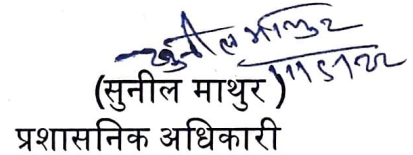 सुनील माथुर
(सुनील माथुर )
प्रशासनिक अधिकारी